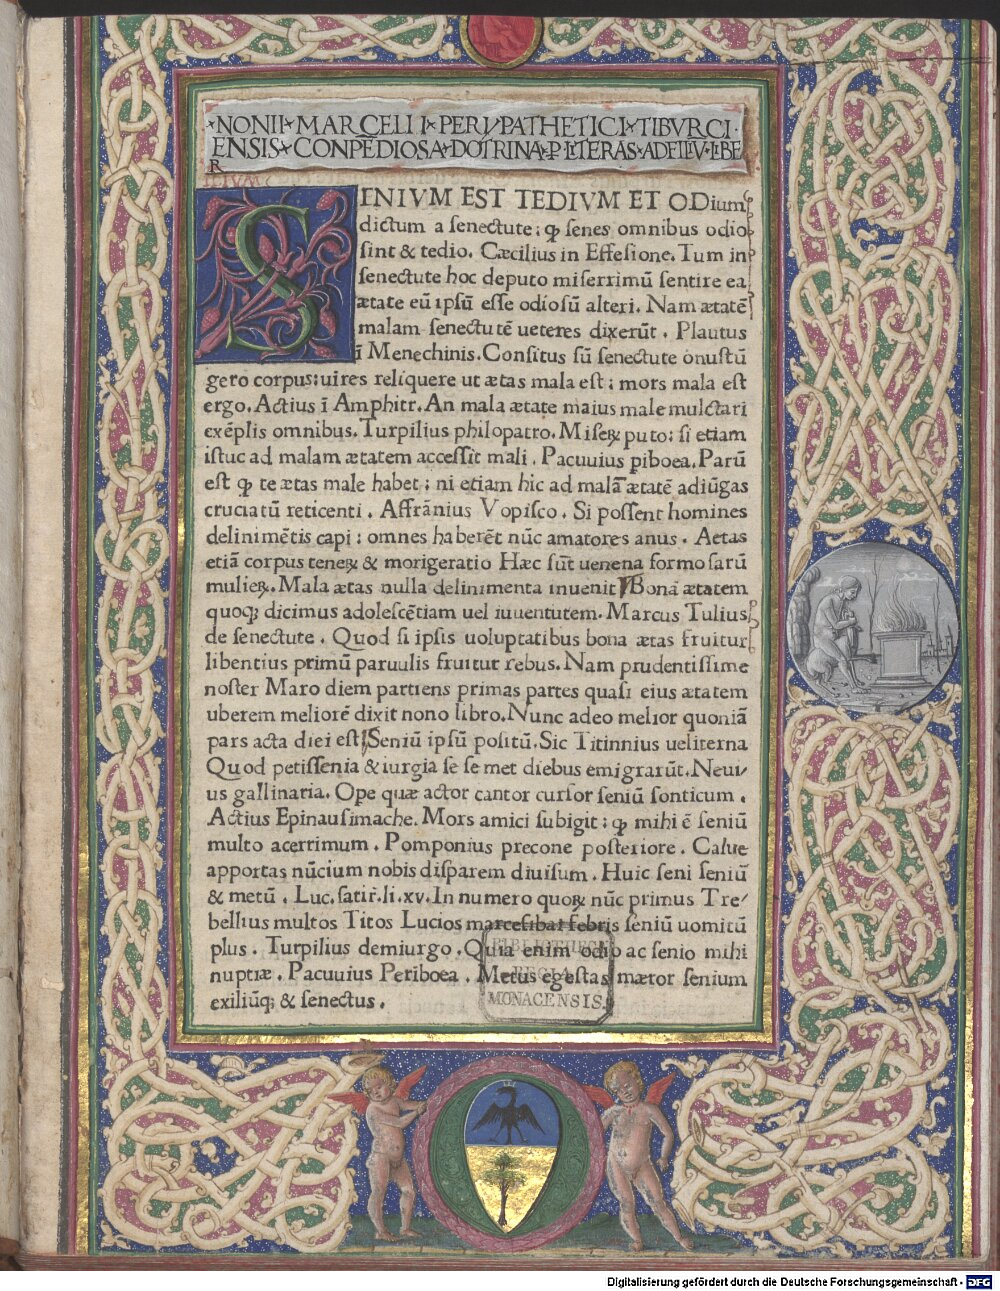 NONII MARCELLI PERIPATHETICI TIBVRCI·
ENSIS CONPEDIOSA DOTRINA P LITERAS AD FILIV LIBE
R
SENIVM EST TEDIVM ET ODium
dictum a senectute: ꝙ senes omnibus odio
sint & tedio. Cæcilius in Effesione. Tum in
senectute hoc deputo miserrimū sentire ea
ætate eū ipsū esse odiosū alteri. Nam ætatē
malam senectutē ueteres dixerūt. Plautus
ī Menechinis. Consitus sū senectute onustū
gero corpus: uires reliquere ut ætas mala est: mors mala est
ergo. Actius ī Amphitr. An mala ætate maius male mulctari
exēplis omnibus. Turpilius philopatro. Miseꝝ puto: si etiam
istuc ad malam ætatem accessit mali. Pacuuius piboea. Parū
est ꝙ te ætas male habet: ni etiam hic ad malā ætatē adiūgas
cruciatū reticenti. Affrānius Vopisco. Si possent homines
delinimētis capi: omnes haberēt nūc amatores anus. Aetas
etiā corpus teneꝝ & morigeratio Hæc sūt uenena formosarū
mulieꝝ. Mala ætas nulla delinimenta inuenit Bonā ætatem
quoqꝫ dicimus adolescētiam uel iuuentutem. Marcus Tulius
de senectute. Quod si ipsis uoluptatibus bona ætas fruitur
libentius primū paruulis fruitur rebus. Nam prudentissime
noster Maro diem partiens primas partes quasi eius ætatem
uberem meliorē dixit nono libro. Nunc adeo melior quoniā
pars acta diei est Seniū ipsū positū. Sic Titinnius ueliterna
Quod petissenia & iurgia sese met diebus emigrarūt. Neui/
us gallinaria. Ope quæ actor cantor cursor seniū sonticum.
Actius Epinausimache. Mors amici subigit: ꝙ mihi ē seniū
multo acerrimum. Pomponius precone posteriore. Calue
apportas nūcium nobis disparem diuisum. Huic seni seniū
& metū. Luc. satir. li. xv. In numero quoꝝ nūc primus Tre/
bellius multos Titos Lucios marcesibat febris seniū uomitū
plus. Turpilius demiurgo. Quia enim odio ac senio mihi
nuptiæ. Pacuuius Periboea. Metus egestas mæror senium
exiliūqꝫ & senectus.
BIBLIOTHECA
REGIA
MONACENSIS.
Digitalisierung gefördert durch die Deutsche Forschungsgemeinschaft - DFG